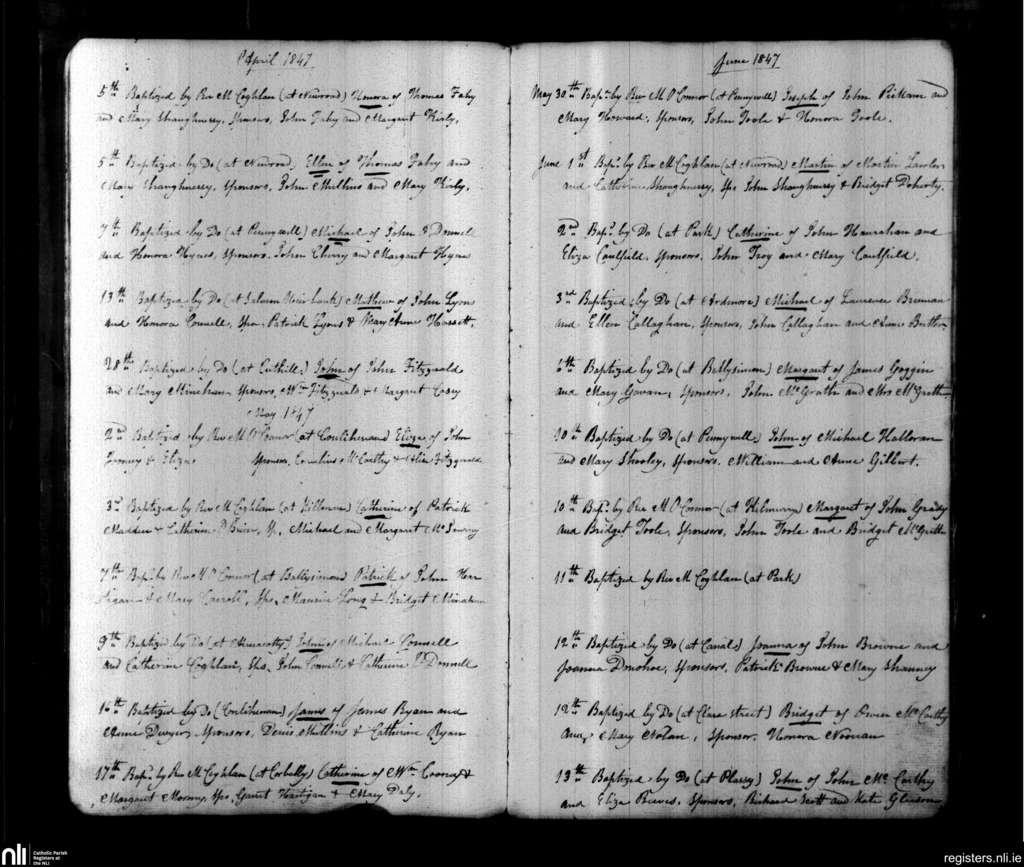 April 1847
5th Baptized by Rev M Coghlan (at Newroad) Honora of Thomas Fahy
and Mary Shaughnessy, Sponsors, John Fahy and Margaret Kirly,
5th Baptized by Do (at Newroad) Ellen of Thomas Fahy and
Mary Shaughnessy, Sponsors, John Mullins and Mary Kirly,
7th Baptized by Do (at Pennywell) Michael of John O Donnell
and Honora Hynes, Sponsors. John Cherry and Margaret Hynes
13th Baptized by Do (at Salmon Weir bank) Mathew of John Lyons
and Honora Connell, Spon. Patrick Lyons & Mary Anne Hassett.
28th Baptized by Do (at John of John Fitzgerald
and Mary Minehan, Sponsors, Wm Fitzgerald & Margaret Casey
May 1847
2nd Babtized by Rev M O'Connor (at Eliza of John
& Eliza Sponsors, Cornelius McCarthy & Fitzgerald
3rd Baptized by Rev M Coghlan (at Catherine of Patrick
Madden & Catherine O'Brien, Sp, Michael and Margaret
7th Bapd by Rev M O Connor (at Ballysimon) Patrick of John
& Mary Carroll, Spo, Maurice Long & Bridget Minahan
9th Baptizd by Do (at John of Michael Connell
and Catherine Coghlan, Spo, John Connell & Catherine O'Donnell
16th Babtized by Do James of James Ryan and
Anne Dwyer, Sponsors, Denis Mullins & Catherine Ryan
17th Bapd by Rev M Coghlan (at Corbally) Catherine of Wm &
Margaret Spo, Garret Hartigan & Mary Daly.
June 1847
May 30th Bapd by Rev M O'Connor (at Pennywell) Joseph of John and
Mary Howard, Sponsors, John Toole & Honora Toole.
June 1st Bapd by Rev M Coghlan (at Newroad) Martin of Martin Lawler
and Catherine Shaughnessy, Spo John Shaughnessy & Bridget Doherty.
2nd Bapd by Do (at Park) Catherine of John Hanrahan and
Eliza Caulfield, Sponsors, John Troy and Mary Caulfild.
3rd Baptized by Do (at Ardmore) Michael of Laurence Brennan
and Ellen Callaghan, Sponsors, John Callaghan and Anne Butler
6th Baptized by Do (at Ballysimon) Margaret of James Goggin
and Mary Gowan, Sponsors, John McGrath and Mrs McGrath
10th Baptized by Do (at Pennywell) John of Michael Halloran
and Mary Shooley, Sponsors, William and Anne Gilbert.
10th Bapd by Rev M O'Connor (at Kilmurry) Margaret of John Grady
and Bridget Toole, Sponsors, John Toole and Bridget McGrath
11th Baptized by Rev M Coghlan (at Park)
12th Baptized by Do (at Canal) Joanna of John Browne and
Joanna Donohoe, Sponsors, Patrick Browne & Mary Shanny
12th Baptized by Do (at Clare street) Bridget of Owen McCarthy
and Mary Nolan, Sponsor. Honora Noonan
13th Baptized by Do (at Plassy) John of John McCarthy
and Eliza Reeves, Sponsors, Richard Scott and Kate Gleeson
nli Catholic Parish
Registers at
the NLI
registers.nli.ie